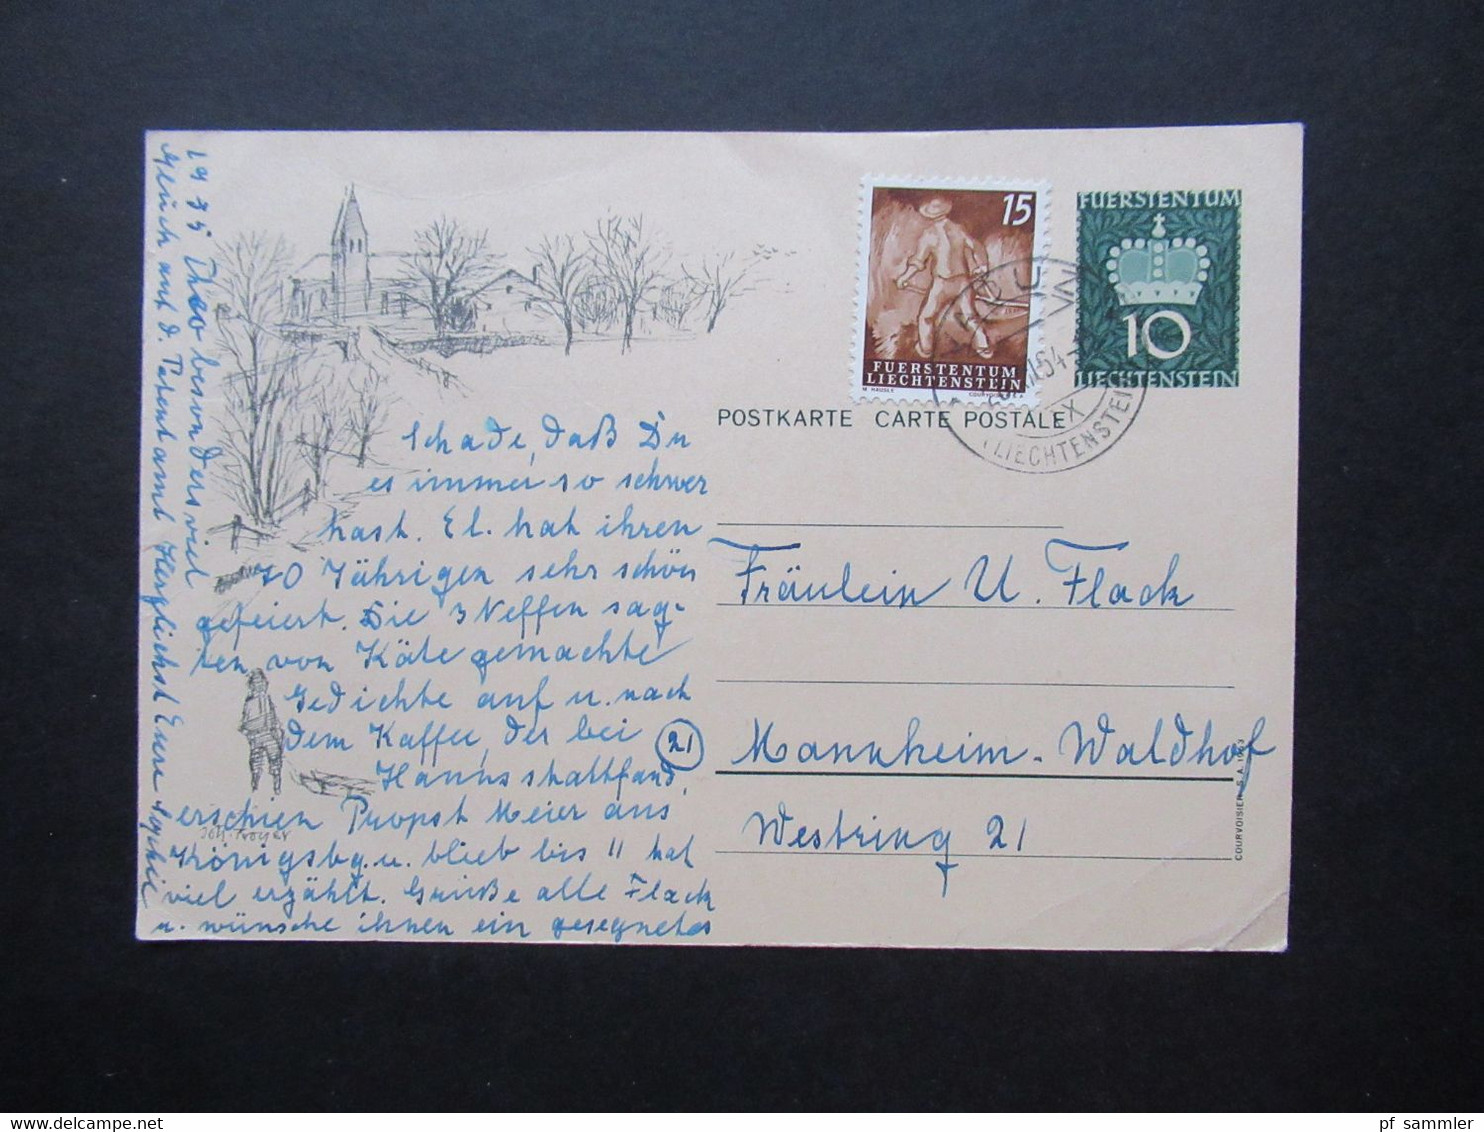 FUERSTENTUM
10
LIECHTENSTEIN
15
FUERSTENTUM
LIECHTENSTEIN
M. HÄUSLE COURVOISIER S.A.
VADUZ
54
LIECHTENSTEIN
POSTKARTE CARTE POSTALE
Schade, daß Du
es immer so schwer
hast. El. hat ihren
70 Jährigen sehr schön
gefeiert. Die 3 Neffen sag-
ten von Käte gemachte
Gedichte auf u. nach
dem Kaffee, der bei
Hanns stattfand,
erschien Propst Meier aus
Königsbg. u. blieb bis 11 hat
viel erzählt. Grüße alle Flack
u. wünsche ihnen ein gesegnetes
1935 Theo besonders viel
auf d. Patentamt Herzlichst Eure
Joh. Troyer
Fräulein U. Flack
21
Mannheim-Waldhof
Westring 21
COURVOISIER S.A. 1953
pf_sammler